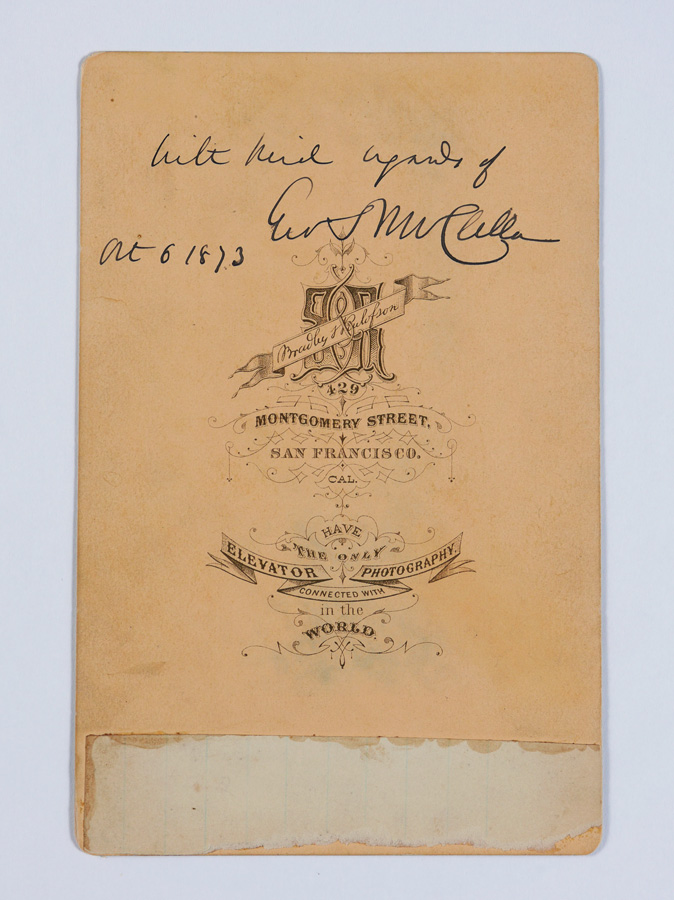 With kind regards of
Geo McClellan
Oct 6 1873
B & R
Bradley & Rulofson
429
MONTGOMERY STREET,
SAN FRANCISCO.
CAL.
HAVE
THE ONLY
ELEVATOR
CONNECTED WITH
PHOTOGRAPHY.
in the
WORLD.